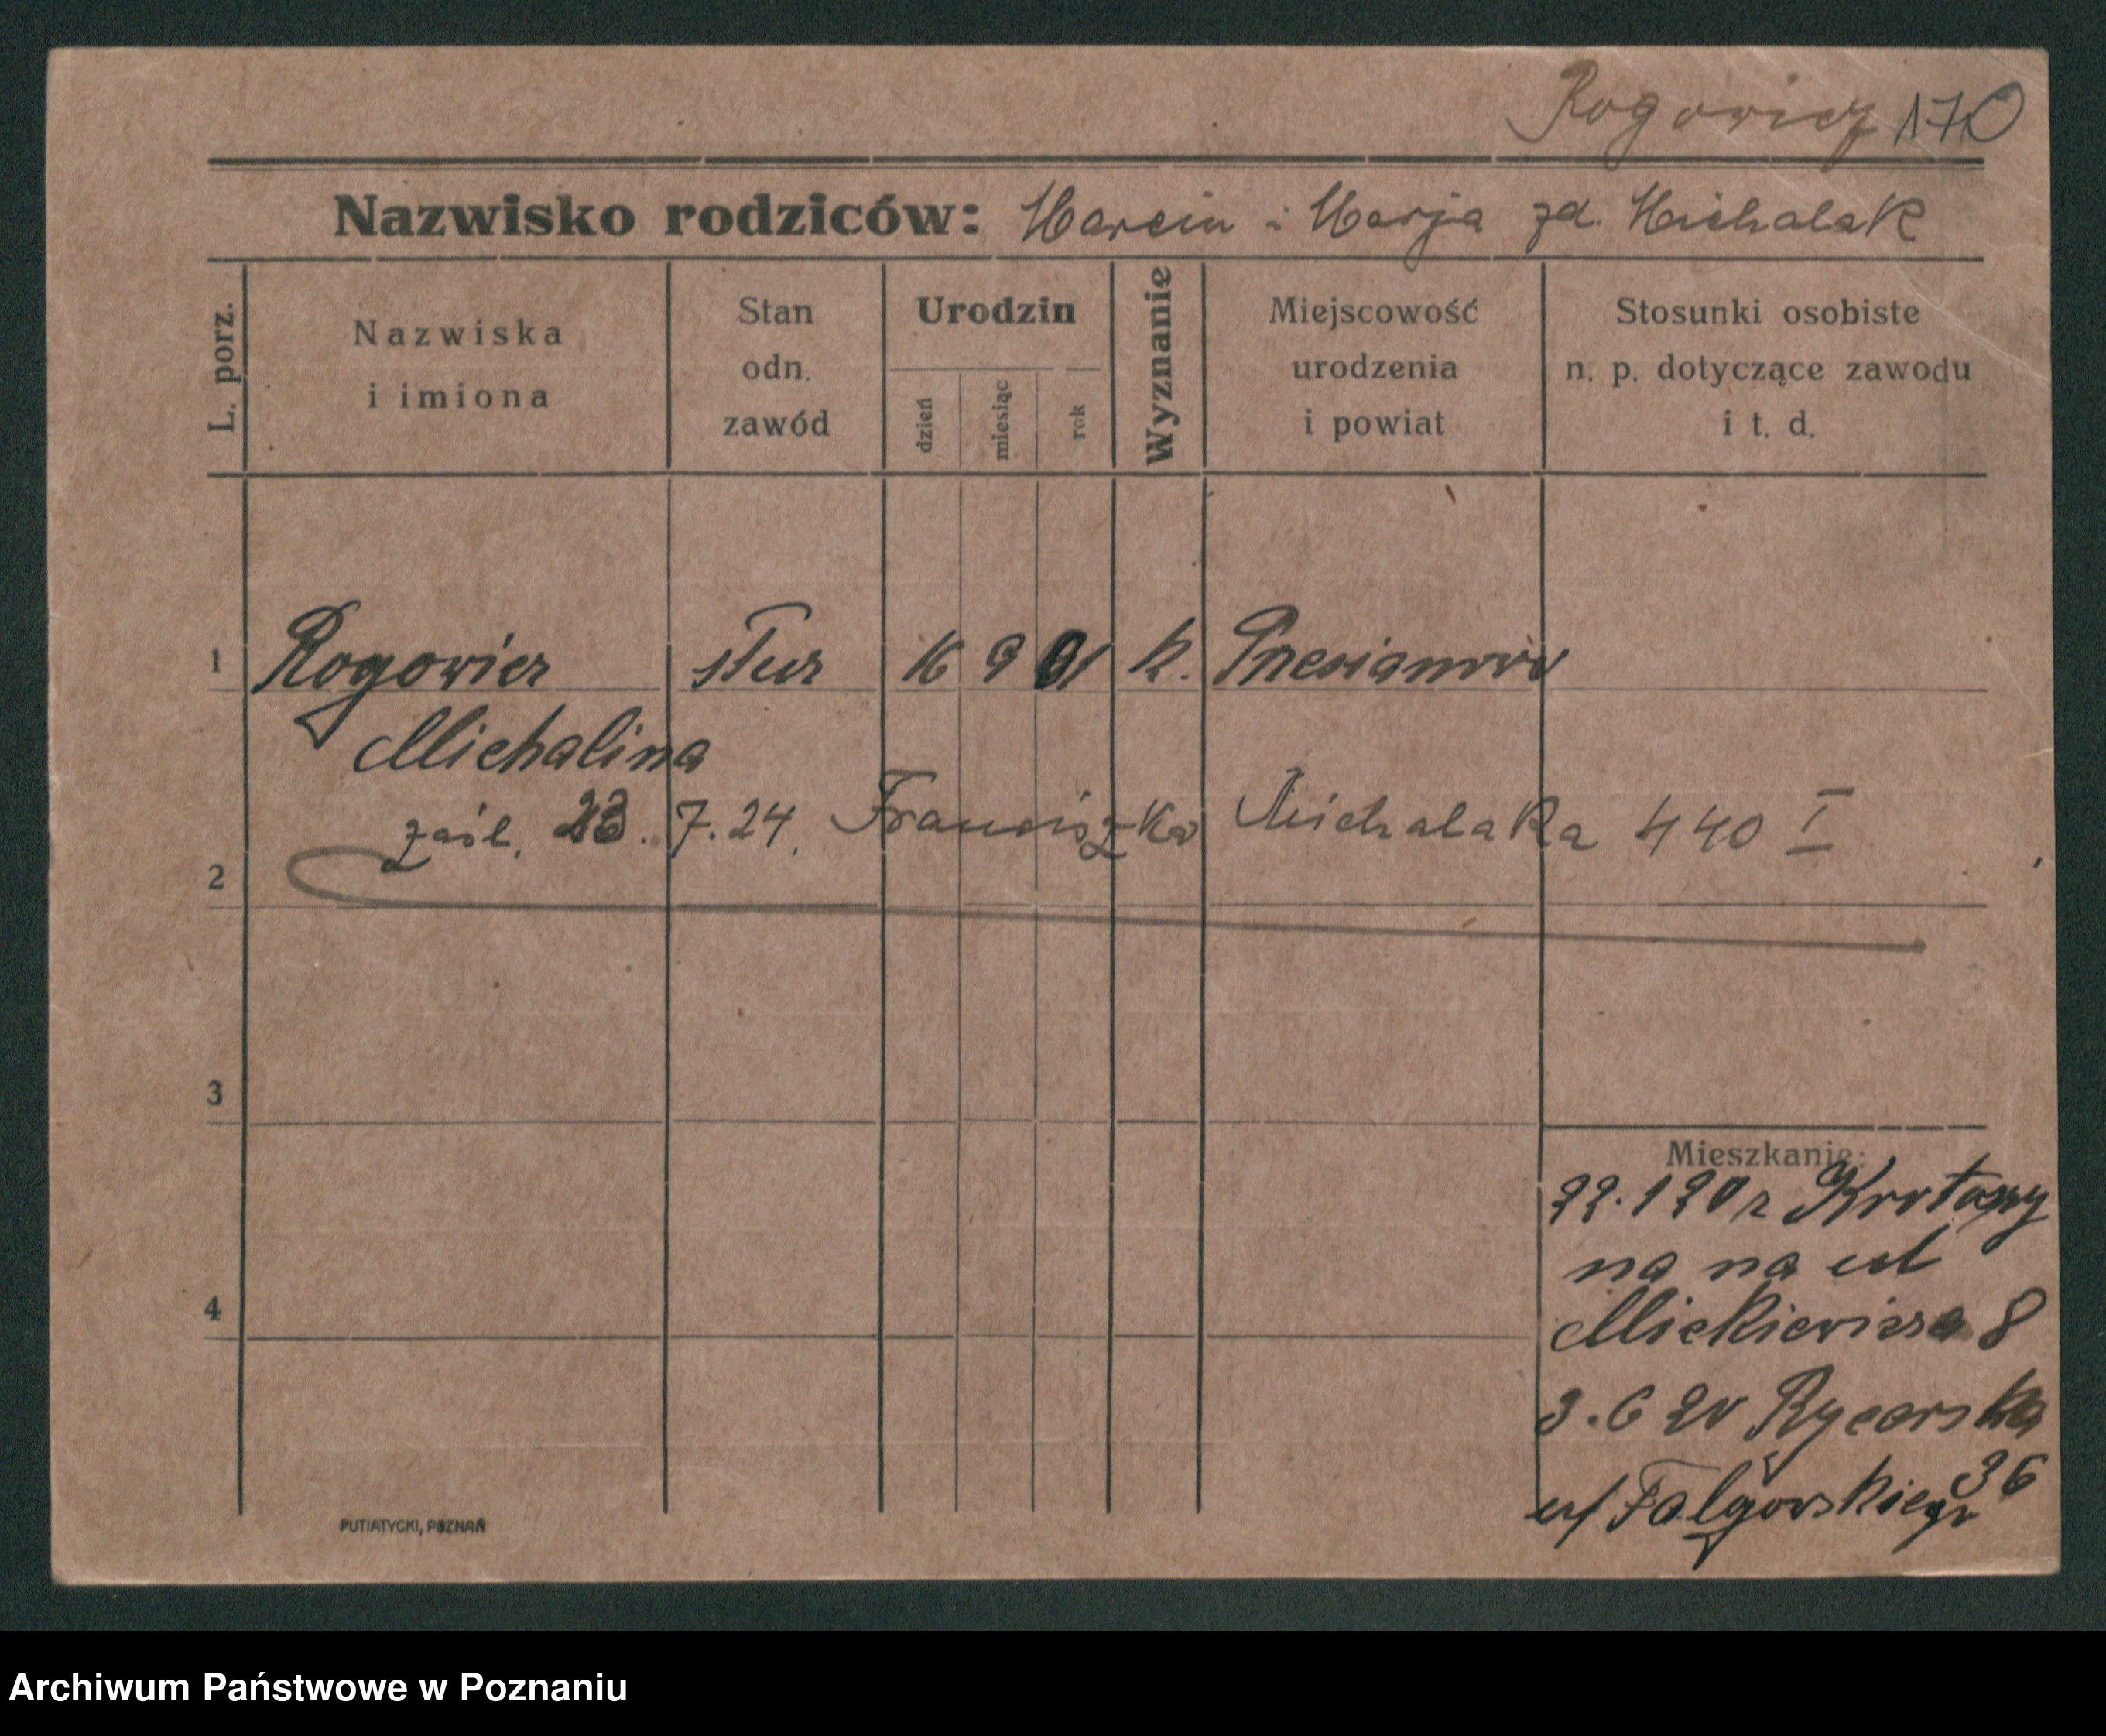 Rogowicz 170
Nazwisko rodziców: Marcin i Marja zd. Michalak
L. porz.
Nazwiska
i imiona
Stan
odn.
zawód
Urodzin
dzień
miesiąc
rok
Wyznanie
Miejscowość
urodzenia
i powiat
Stosunki osobiste
n. p. dotyczące zawodu
i t. d.
1 Rogowicz służ 16 9 01 k.
Michalina
zaśl. 23. 7. 24. Franciszka Michalaka 440 I
2
3
4
Mieszkanie:
22.1 20 r
na na ul
Mickiewicza 8
3.6 20 Rycerska
36
u/
PUTIATYCKI, POZNAŃ
Archiwum Państwowe w Poznaniu